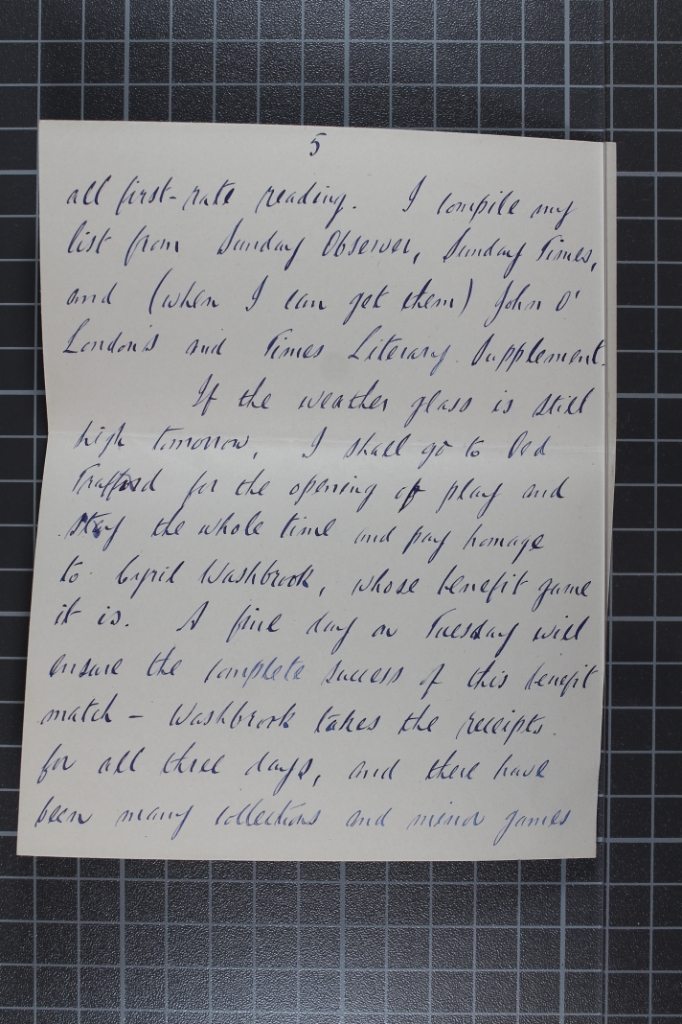 5
all first-rate reading. I compile my
list from Sunday Observer, Sunday Times,
and (when I can get them) John O'
London's and Times Literary Supplement.
If the weather glass is still
high tomorrow, I shall go to Old
Trafford for the opening of play and
stay the whole time and pay homage
to Cyril Washbrook, whose benefit game
it is. A fine day on Tuesday will
ensure the complete success of this benefit
match - Washbrook takes the receipts
for all three days, and there have
been many collections and minor games